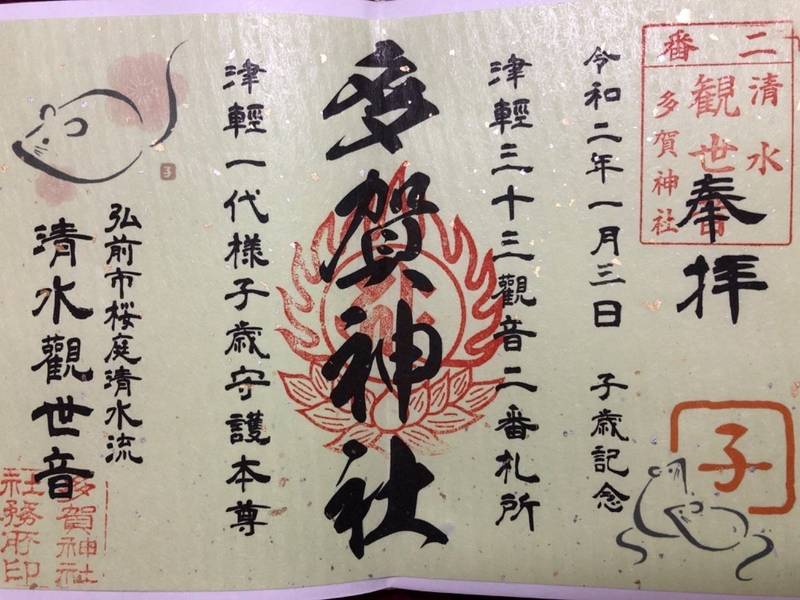 二番
清水
観世音
多賀神社
奉拝
令和二年一月三日 子歳記念
子
津輕三十三觀音二番札所
多賀神社
津輕一代様子歳守護本尊
弘前市桜庭清水流
清水觀世音
多賀神社
社務所印